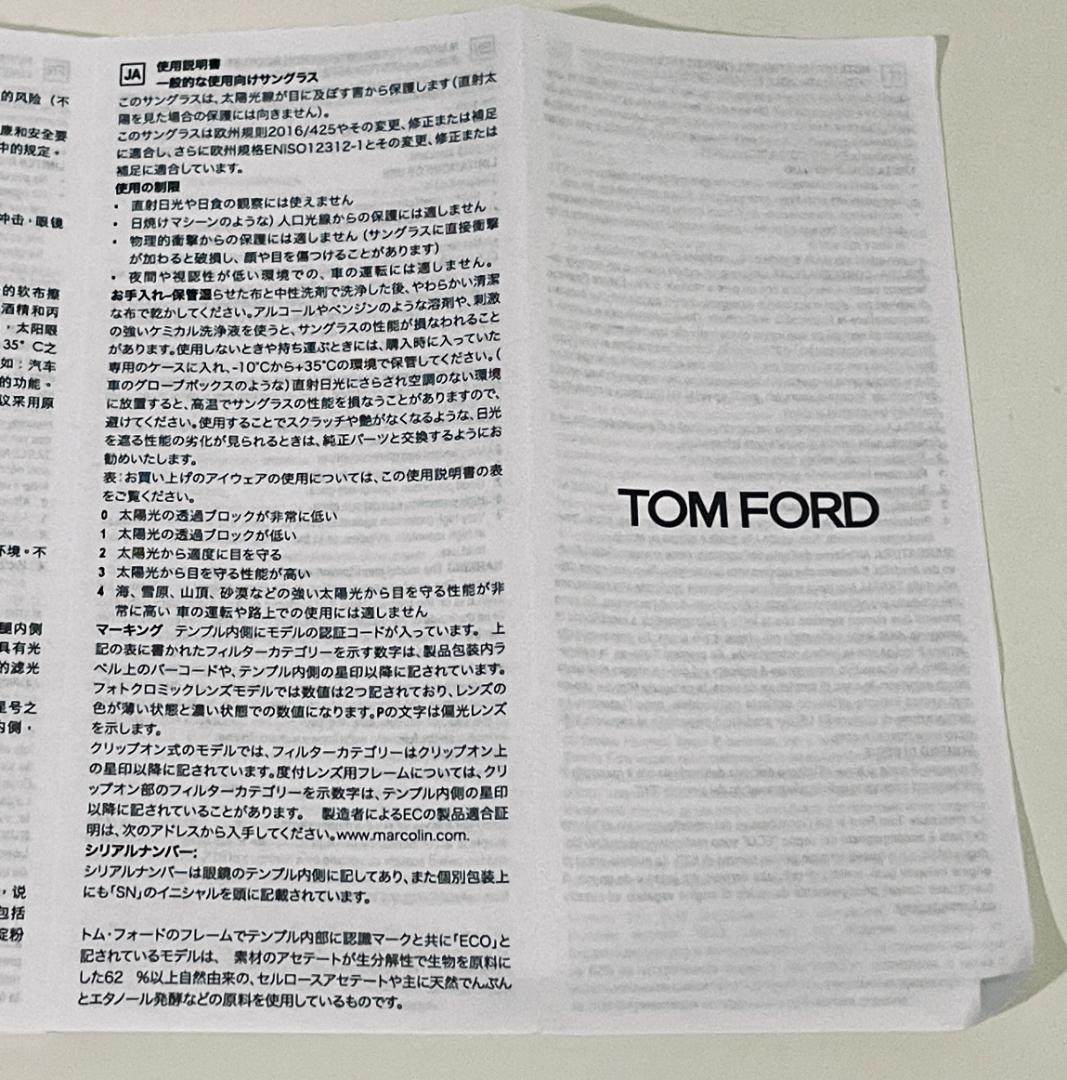 的风险（不
康和安全要
中的规定。
冲击，眼镜
的软布擦
酒精和丙
，太阳眼
35° C之
如：汽车
的功能。
议采用原
环境。不
腿内侧
具有光
的滤光
星号之
内侧，
，说
包括
淀粉
JA 使用説明書
一般的な使用向けサングラス
このサングラスは、太陽光線が目に及ぼす害から保護します（直射太
陽を見た場合の保護には向きません）。
このサングラスは欧州規則2016/425やその変更、修正または補足
に適合し、さらに欧州規格ENISO12312-1とその変更、修正または
補足に適合しています。
使用の制限
• 直射日光や日食の観察には使えません
• 日焼けマシーンのような）人口光線からの保護には適しません
• 物理的衝撃からの保護には適しません（サングラスに直接衝撃
が加わると破損し、顔や目を傷つけることがあります）
• 夜間や視認性が低い環境での、車の運転には適しません。
お手入れ-保管湿らせた布と中性洗剤で洗浄した後、やわらかい清潔
な布で乾かしてください。アルコールやベンジンのような溶剤や、刺激
の強いケミカル洗浄液を使うと、サングラスの性能が損なわれること
があります。使用しないときや持ち運ぶときには、購入時に入っていた
専用のケースに入れ、-10°Cから+35°Cの環境で保管してください。（
車のグローブボックスのような）直射日光にさらされ空調のない環境
に放置すると、高温でサングラスの性能を損なうことがありますので、
避けてください。使用することでスクラッチや艶がなくなるような、日光
を遮る性能の劣化が見られるときは、純正パーツと交換するようにお
勧めいたします。
表：お買い上げのアイウェアの使用については、この使用説明書の表
をご覧ください。
0 太陽光の透過ブロックが非常に低い
1 太陽光の透過ブロックが低い
2 太陽光から適度に目を守る
3 太陽光から目を守る性能が高い
4 海、雪原、山頂、砂漠などの強い太陽光から目を守る性能が非
常に高い 車の運転や路上での使用には適しません
マーキング テンプル内側にモデルの認証コードが入っています。 上
記の表に書かれたフィルターカテゴリーを示す数字は、製品包装内ラ
ベル上のバーコードや、テンプル内側の星印以降に記されています。
フォトクロミックレンズモデルでは数値は2つ記されており、レンズの
色が薄い状態と濃い状態での数値になります。Pの文字は偏光レンズ
を示します。
クリップオン式のモデルでは、フィルターカテゴリーはクリップオン上
の星印以降に記されています。度付レンズ用フレームについては、クリ
ップオン部のフィルターカテゴリーを示数字は、テンプル内側の星印
以降に記されていることがあります。 製造者によるECの製品適合証
明は、次のアドレスから入手してください。www.marcolin.com.
シリアルナンバー：
シリアルナンバーは眼鏡のテンプル内側に記してあり、また個別包装上
にも「SN」のイニシャルを頭に記載されています。
トム・フォードのフレームでテンプル内部に認識マークと共に「ECO」と
記されているモデルは、 素材のアセテートが生分解性で生物を原料に
した62 %以上自然由来の、セルロースアセテートや主に天然でんぷん
とエタノール発酵などの原料を使用しているものです。
TOM FORD